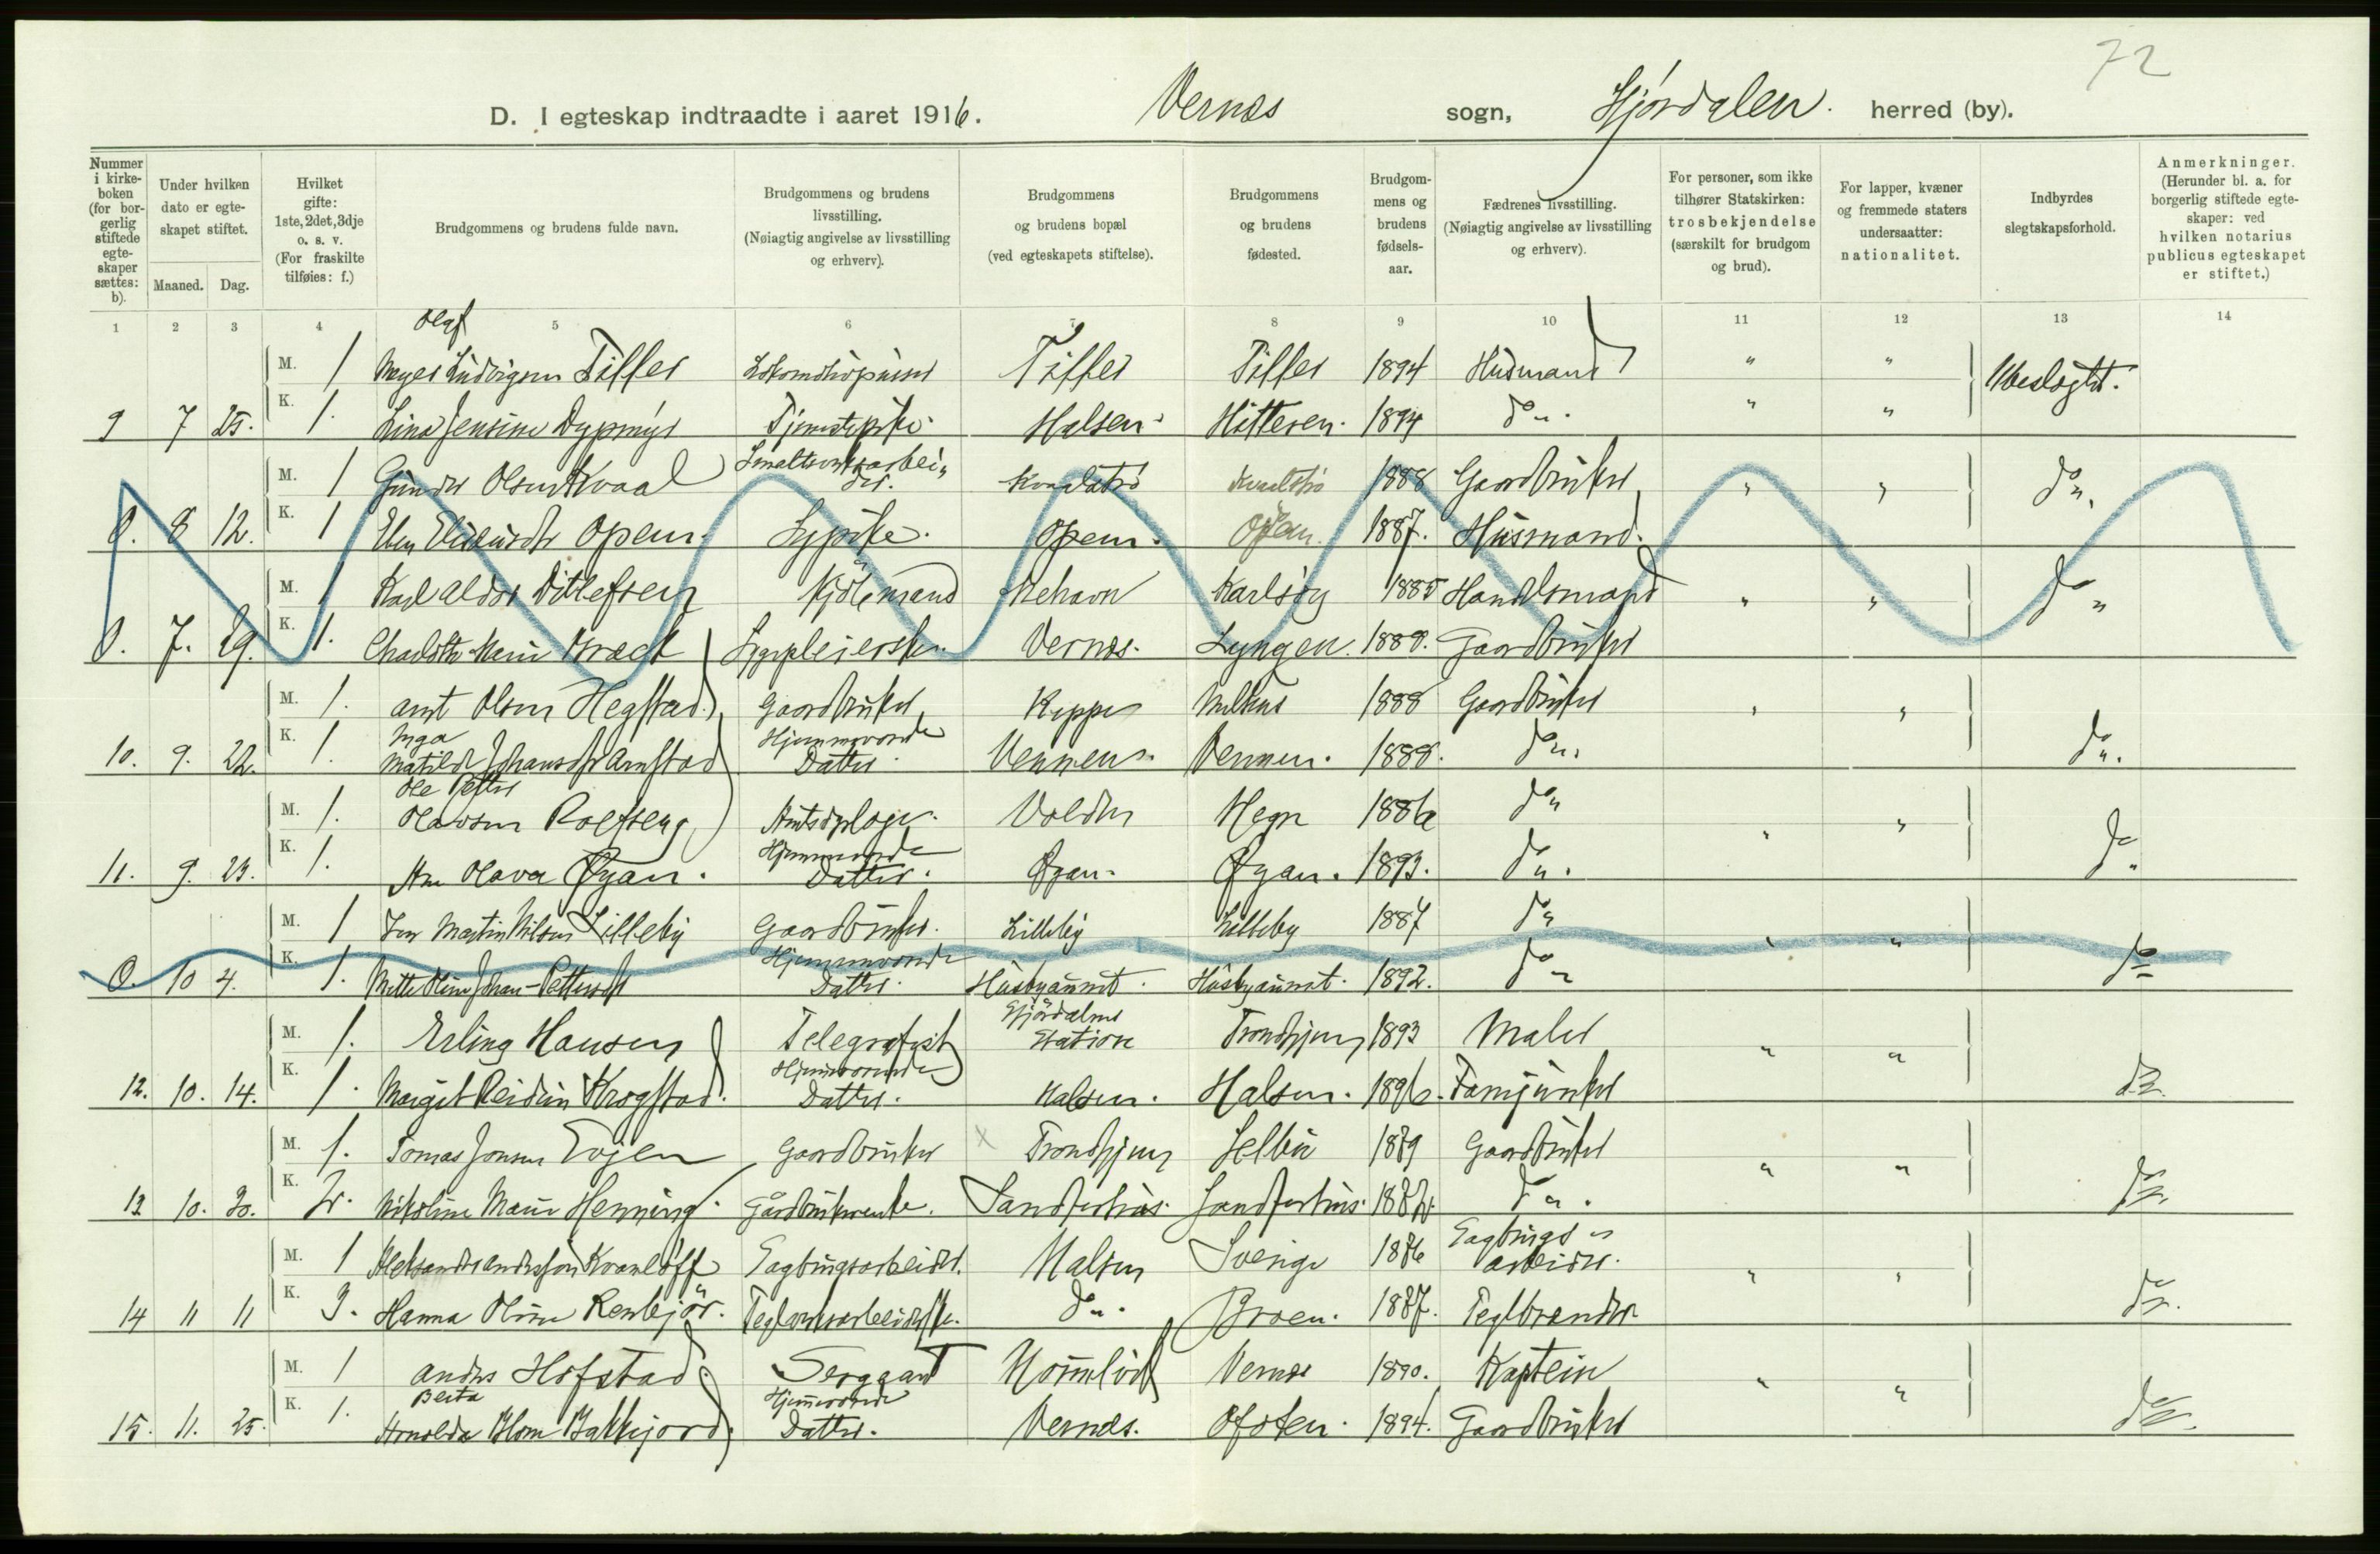 72
D. I egteskap indtraadte i aaret 1916. Vernes sogn, Stjørdalen. herred (by).
Nummer i kirkeboken (for borgerlig stiftede egteskaper sættes: b).
Under hvilken dato er egteskapet stiftet.
Maaned. Dag.
Hvilket gifte: 1ste, 2det, 3dje o. s. v. (For fraskilte tilføies: f.)
Brudgommens og brudens fulde navn.
Brudgommens og brudens livsstilling. (Nøiagtig angivelse av livsstilling og erhverv).
Brudgommens og brudens bopæl (ved egteskapets stiftelse).
Brudgommens og brudens fødested.
Brudgommens og brudens fødselsaar.
Fædrenes livsstilling. (Nøiagtig angivelse av livsstilling og erhverv).
For personer, som ikke tilhører Statskirken: trosbekjendelse (særskilt for brudgom og brud).
For lapper, kvæner og fremmede staters undersaatter: nationalitet.
Indbyrdes slegtskapsforhold.
Anmerkninger. (Herunder bl. a. for borgerlig stiftede egteskaper: ved hvilken notarius publicus egteskapet er stiftet.)
1 2 3 4 5 6 7 8 9 10 11 12 13 14
Olaf
M. 1 Meyer Ludvigsen Tiller Lokomotivpusser Tiller Tiller 1894 Husmand " " Ubeslægtet.
9 7 25. K. 1. Lina Jensine Dypmyr Tjenestepike. Halsen. Hitteren. 1894 do. " "
M. 1 Gunder Olsen Kvaal Smelteverksarbeider. 1888 Gaardbruker " " do.
0. 8 12. K. 1 Opem. Sypike. Opem. Opem. 1887. Husmand.
M. 1 Karl Aldor Ditlefsen Kjølemand Mehavn Karlsøy 1885 Handelsmand " " do "
0. 7. 29. K. 1. Charlotte Marie Bræck Sygepleierske. Vernes. Lyngen. 1880. Gaardbruker
M. 1. Arnt Olsen Hegstad Gaardbruker Reppe 1888 Gaardbruker " "
Inga Hjemmeværende
10. 9. 22. K. 1. Matilde Johansdtr Arnstad Datter. Vennen. Vennen. 1888. do. do.
Ole Petter
M. 1. Olavsen Rolfseng Volden Hegre 1886 do " "
Hjemmeværende
11. 9. 23. K. 1. Olava Øyan. Datter. Øyan. Øyan. 1893. do. do.
M. 1 Martin Nilsen Lilleby Gaardbruker. Lilleby Lilleby 1887 do " "
Hjemmeværende
0. 10 4. K. 1. Datter. Husbyaunet. Husbyaunet. 1892. do do
Stjørdalens
M. 1. Erling Hansen Telegrafist Station Trondhjem 1893 Maler " "
Hjemmeværende
12. 10. 14. K. 1. Margit Reidun Krogstad. Datter. Halsen. Halsen. 1896. Fanejunker do.
M. 1. Tomas Jonsen Evjen Gaardbruker x Trondhjem Selbu 1879 Gaardbruker " "
13. 10. 30. K. 2. Nikoline Marie Henning. Gårdbrukerenke. Sandferhus. Sandferhus. 1882. do. do.
M. 1 Sagbruksarbeider. Halsen Sverige 1876 Sagbruks- arbeider. " "
14 11 11 K. 3. Hanna Oline Renbjør. Teglverksarbeiderske. do. Broen. 1887. Teglbrænder do.
M. 1 Anders Hofstad. Sergeant Hommelvik Vernes 1890. Kaptein " "
Berta Hjemmeværende
15. 11. 25. K. 1. Arnolda Blom Bakkejord. Datter. Vernes. Ofoten. 1894. Gaardbruker do.